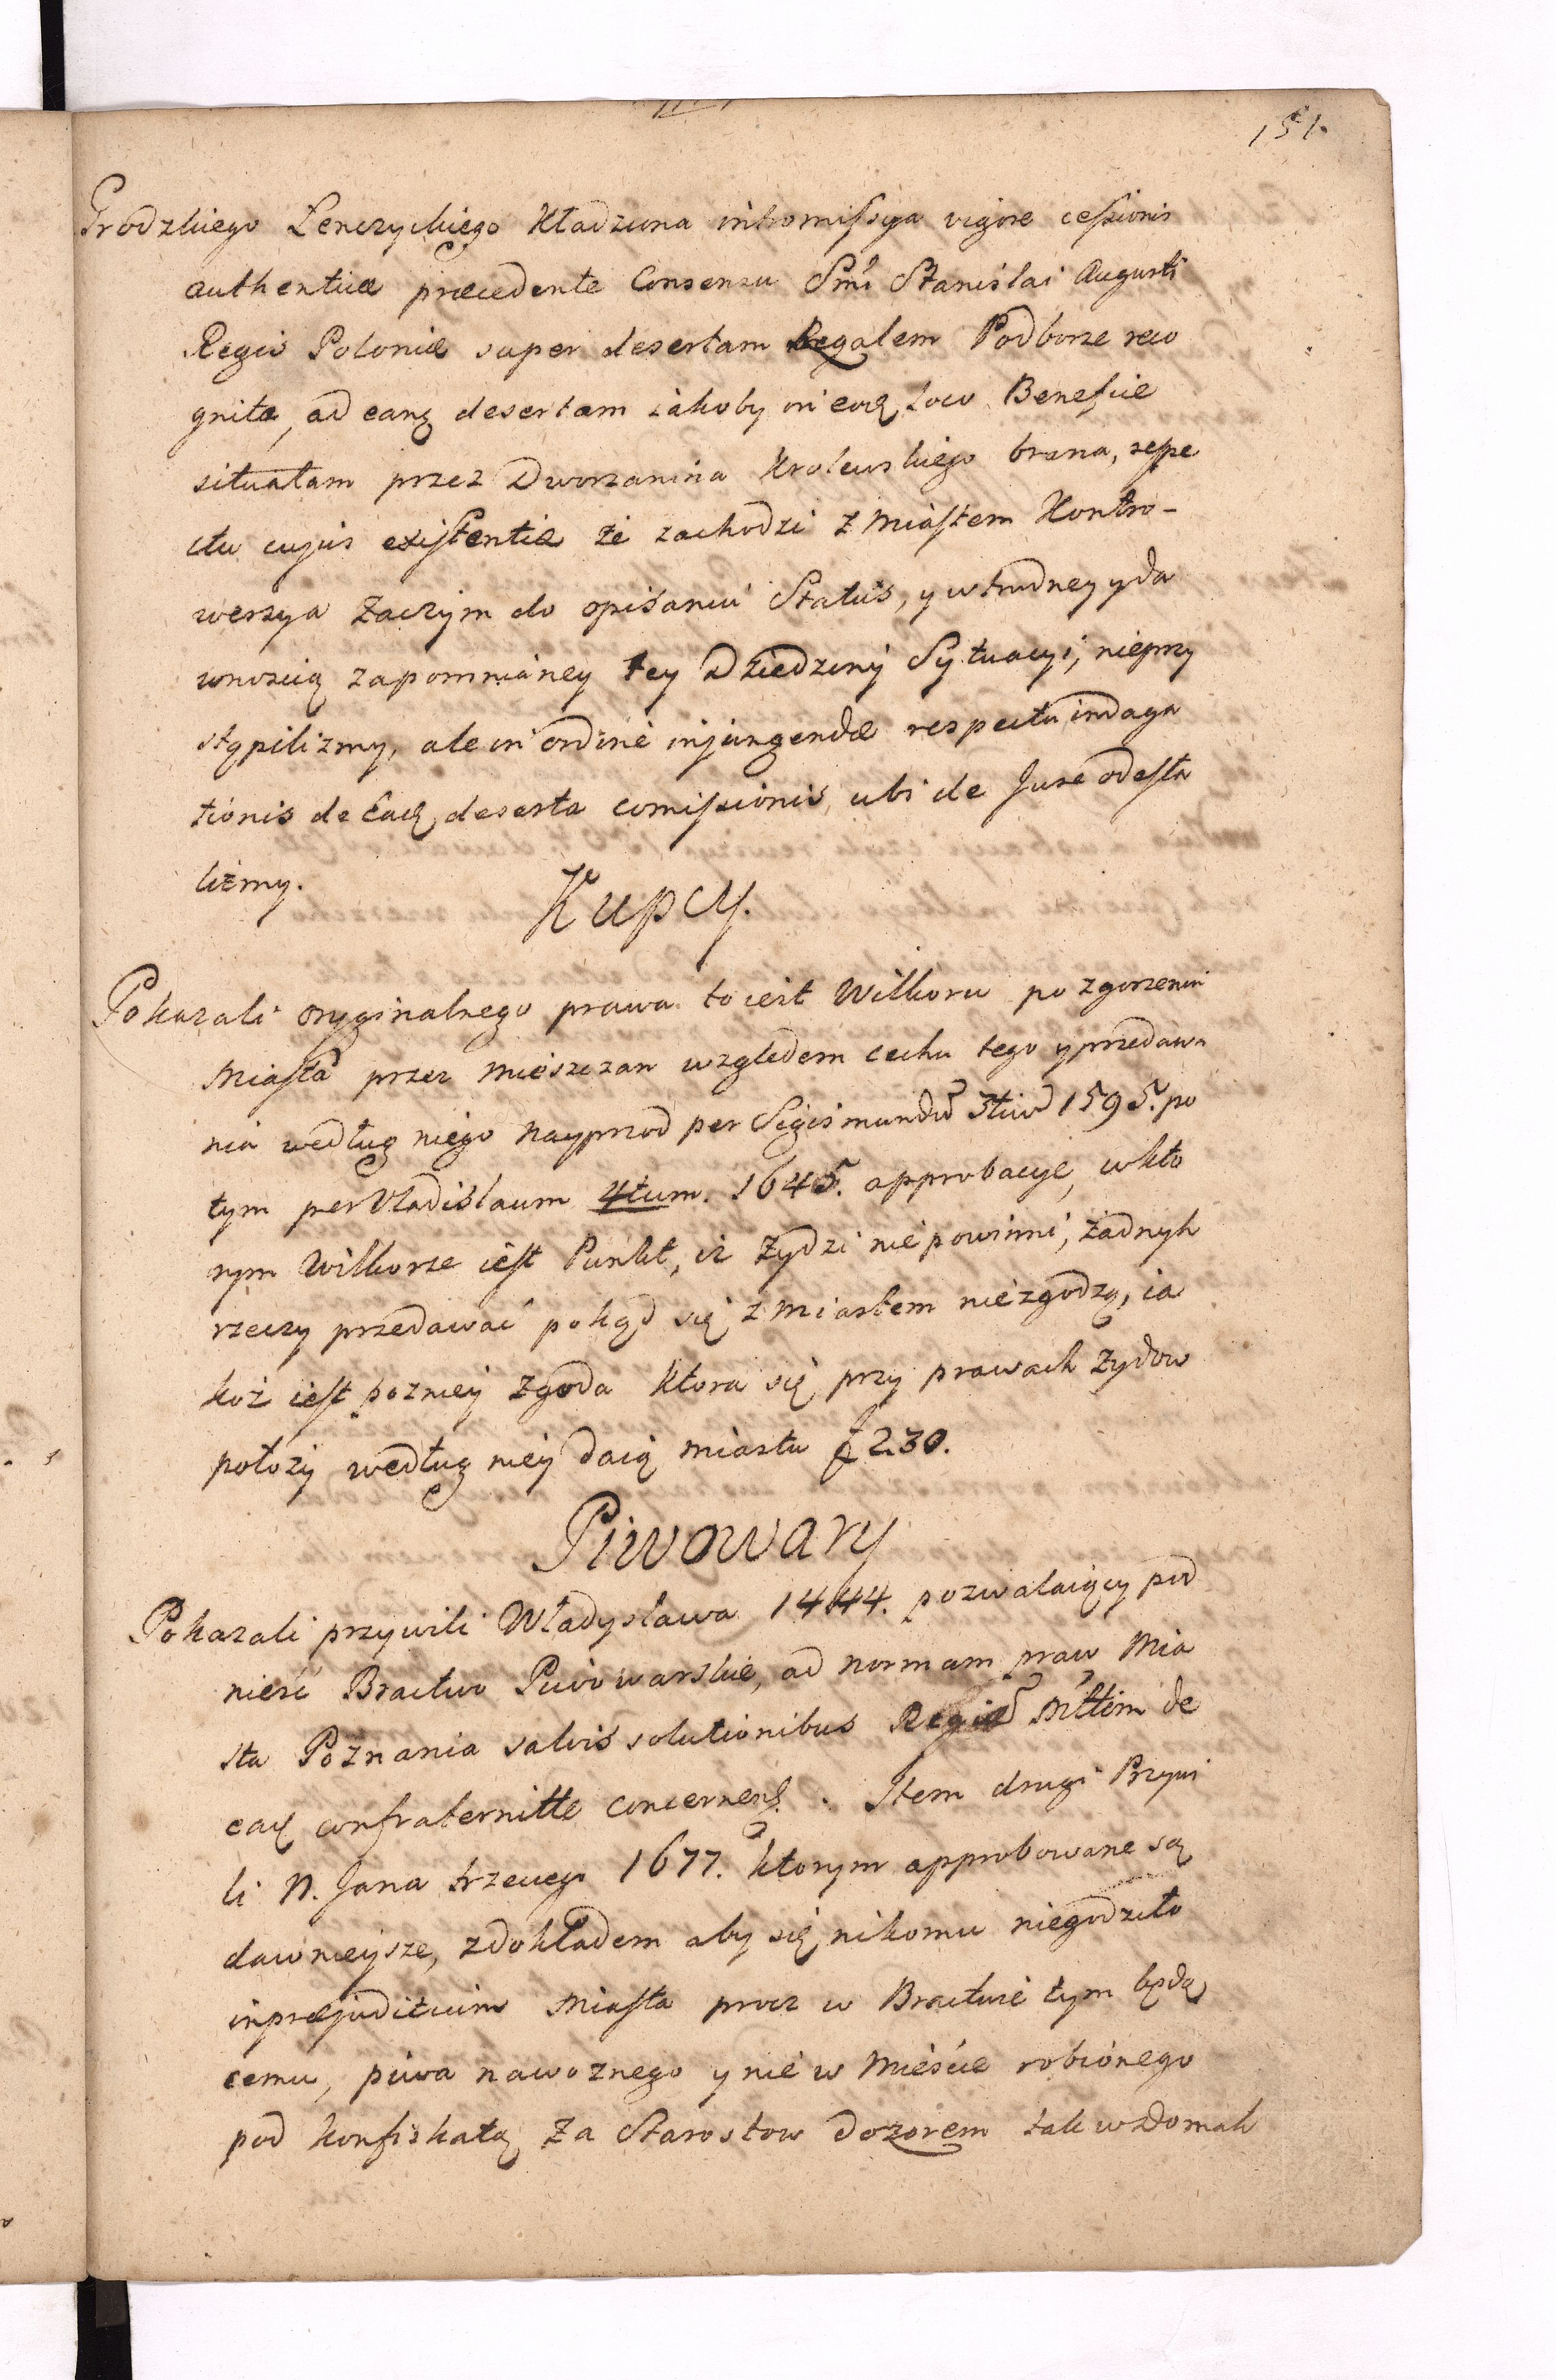 151.
Grodzkiego Lenczyckiego Kładziona intromissya vigore cessionis
authenticæ præcedente Consensu Smi Stanislai Augusti
Regis Poloniæ super desertam Regalem Podborze reco
gnitæ, ad eanq desertam iakoby in eoq loco Beneficie
situatam przez Dworzanina Krolewskiego brana, respe
ctu cujus existentiæ że zachodzi z Miastem Kontro-
wersya Zaczym do opisaniu Status, y w trudney y da
wnoscią zapomnianey tey Dziedziny Sytuacyi, nieprzy
stąpilizmy, ale in ordine injungendæ respectu indaga
tionis de Eadq deserta comissionis, ubi de Jure odesła
liżmy.
Kupcy.
Pokazali oryginalnego prawa to iest Wilkoru po zgorzeniu
Miasta przez Mieszczan względem cechu tego y przedawa
nia według niego nayprzod per Sigismundum 3tium 1595. po
tym per Vladislaum 4tum. 1645. approbacye, w kto
rym Wilkorze iest Punkt, iż Żydzi nie powinni, żadnych
rzeczy przedawać pokąd się z Miastem nie zgodzą, ia
koż iest pozniey zgoda ktora się przy prawach Żydow
położy według niey daią miastu f 230.
Piwowary
Pokazali przywili Władysława 1444. pozwalaiący pod
nieść Bractwo Piwowarskie, ad normam praw Mia
sta Poznania salvis solutionibus Regiis Mltim de
eadq confraternitte concerneñ. Item drugi Przywi
li N. Jana trzeciego 1677. ktorym approbowane są
dawnieysze, z dokładem aby się nikomu niegodziło
inpræjuditium Miasta procz w Bractwie tym będą
cemu, piwa nawoznego y nie w Mieście robionego
pod konfiskatą za Starostow dozorem tak w Domach